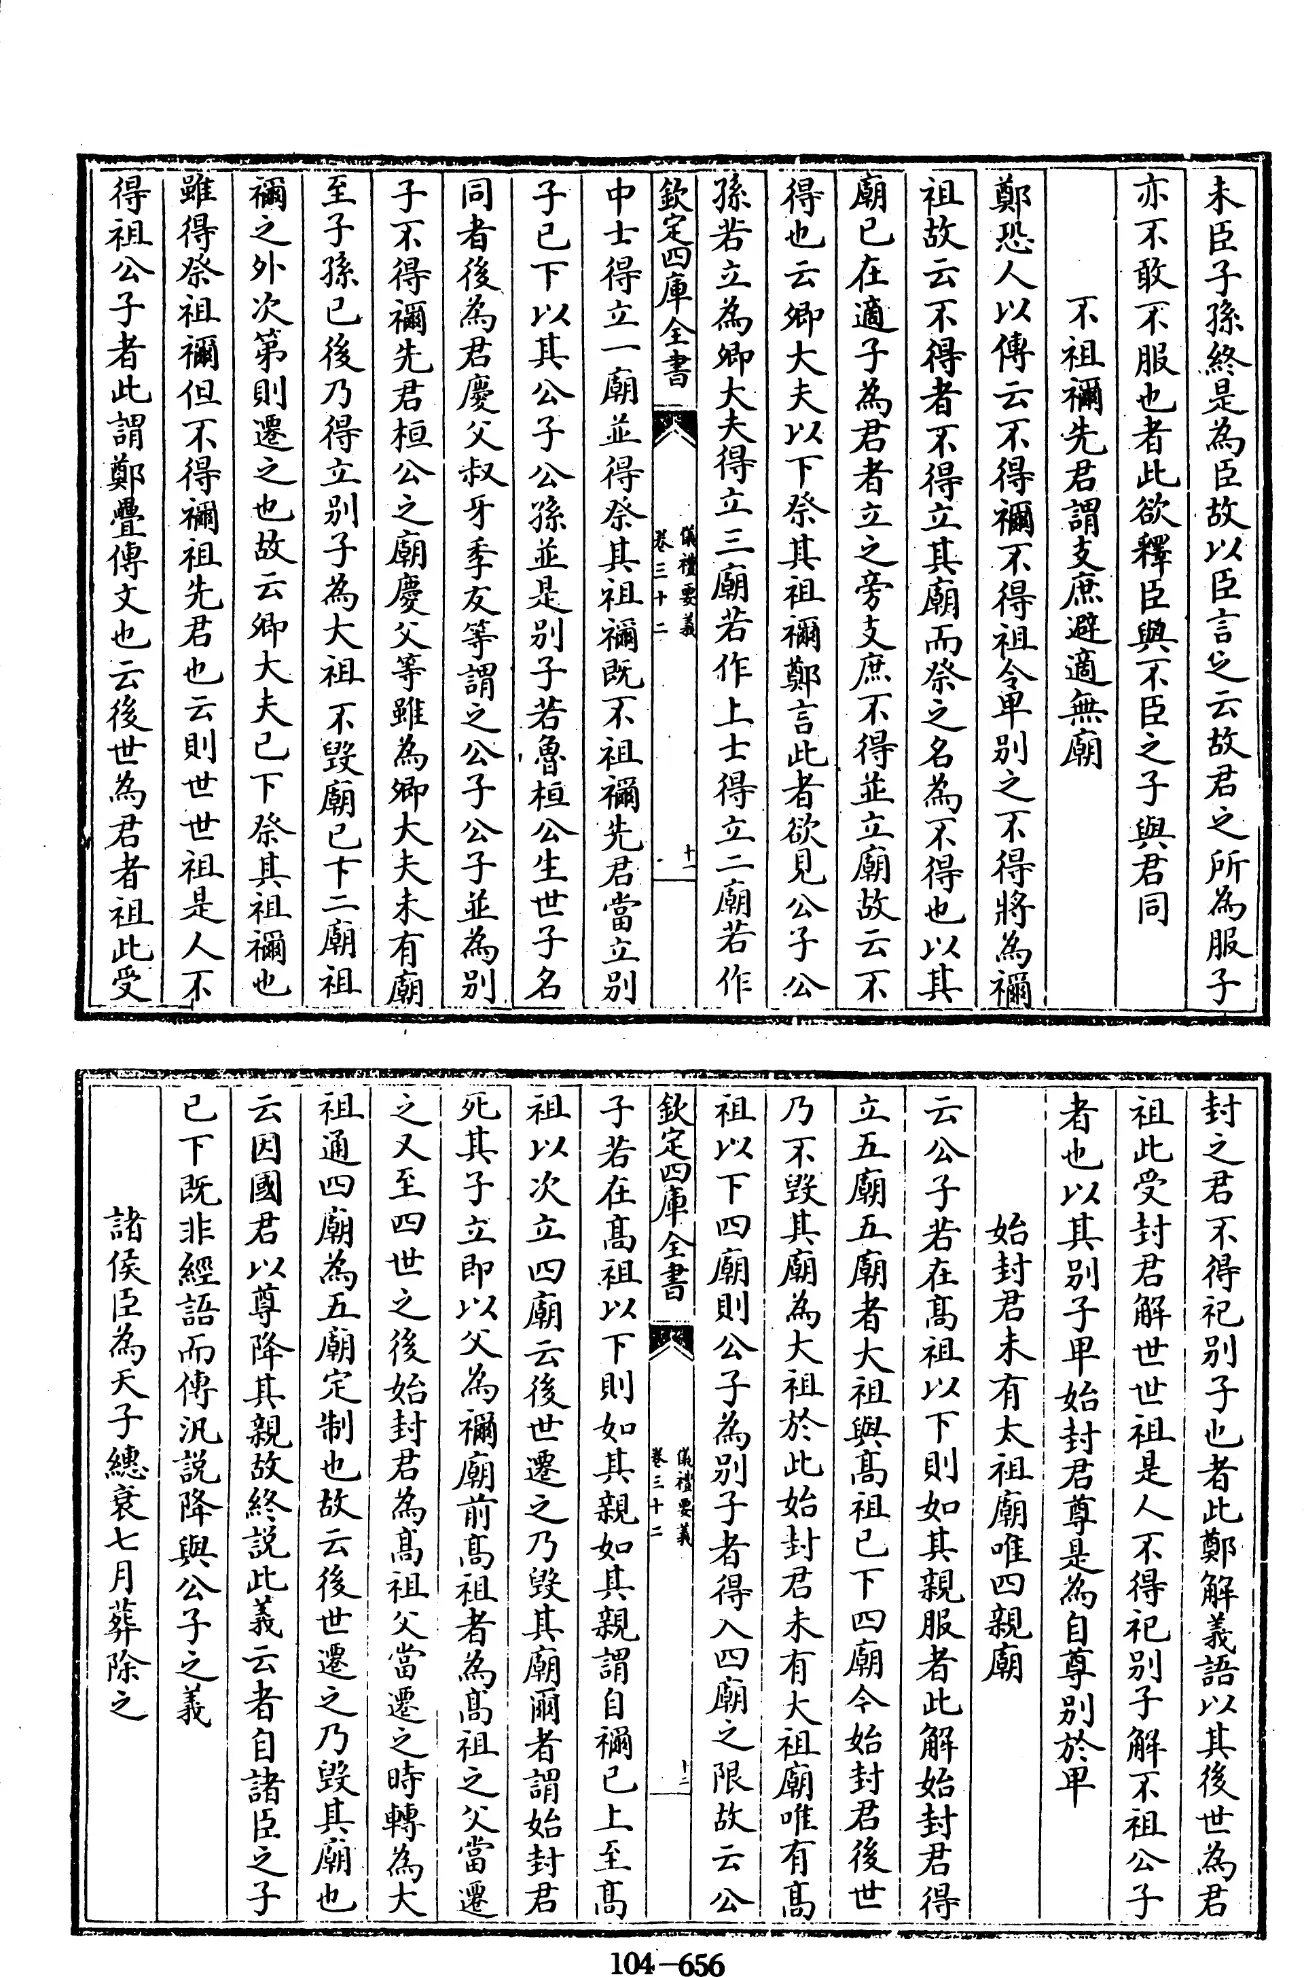 未臣子孫終是為臣故以臣言之云故君之所為服子
亦不敢不服也者此欲釋臣與不臣之子與君同
不祖禰先君謂支庶避適無廟
鄭恐人以傳云不得禰不得祖令卑别之不得將為禰
祖故云不得者不得立其廟而祭之名為不得也以其
廟已在適子為君者立之旁支庶不得並立廟故云不
得也云卿大夫以下祭其祖禰鄭言此者欲見公子公
孫若立為卿大夫得立三廟若作上士得立二廟若作
欽定四庫全書
儀禮要義
卷三十二
十一
中士得立一廟並得祭其祖禰既不祖禰先君當立别
子已下以其公子公孫並是别子若魯桓公生世子名
同者後為君慶父叔牙季友等謂之公子公子並為别
子不得禰先君桓公之廟慶父等雖為卿大夫未有廟
至子孫已後乃得立别子為大祖不毀廟已下二廟祖
禰之外次第則遷之也故云卿大夫已下祭其祖禰也
雖得祭祖禰但不得禰祖先君也云則世世祖是人不
得祖公子者此謂鄭疊傳文也云後世為君者祖此受
封之君不得祀别子也者此鄭解義語以其後世為君
祖此受封君解世世祖是人不得祀别子解不祖公子
者也以其别子卑始封君尊是為自尊别於卑
始封君未有太祖廟唯四親廟
云公子若在髙祖以下則如其親服者此解始封君得
立五廟五廟者大祖與髙祖已下四廟今始封君後世
乃不毀其廟為大祖於此始封君未有大祖廟唯有髙
祖以下四廟則公子為别子者得入四廟之限故云公
欽定四庫全書
儀禮要義
卷三十二
十二
子若在髙祖以下則如其親如其親謂自禰已上至髙
祖以次立四廟云後世遷之乃毀其廟爾者謂始封君
死其子立即以父為禰廟前髙祖者為髙祖之父當遷
之又至四世之後始封君為髙祖父當遷之時轉為大
祖通四廟為五廟定制也故云後世遷之乃毀其廟也
云因國君以尊降其親故終説此義云者自諸臣之子
已下既非經語而傳汎説降與公子之義
諸侯臣為天子繐衰七月葬除之
104-656